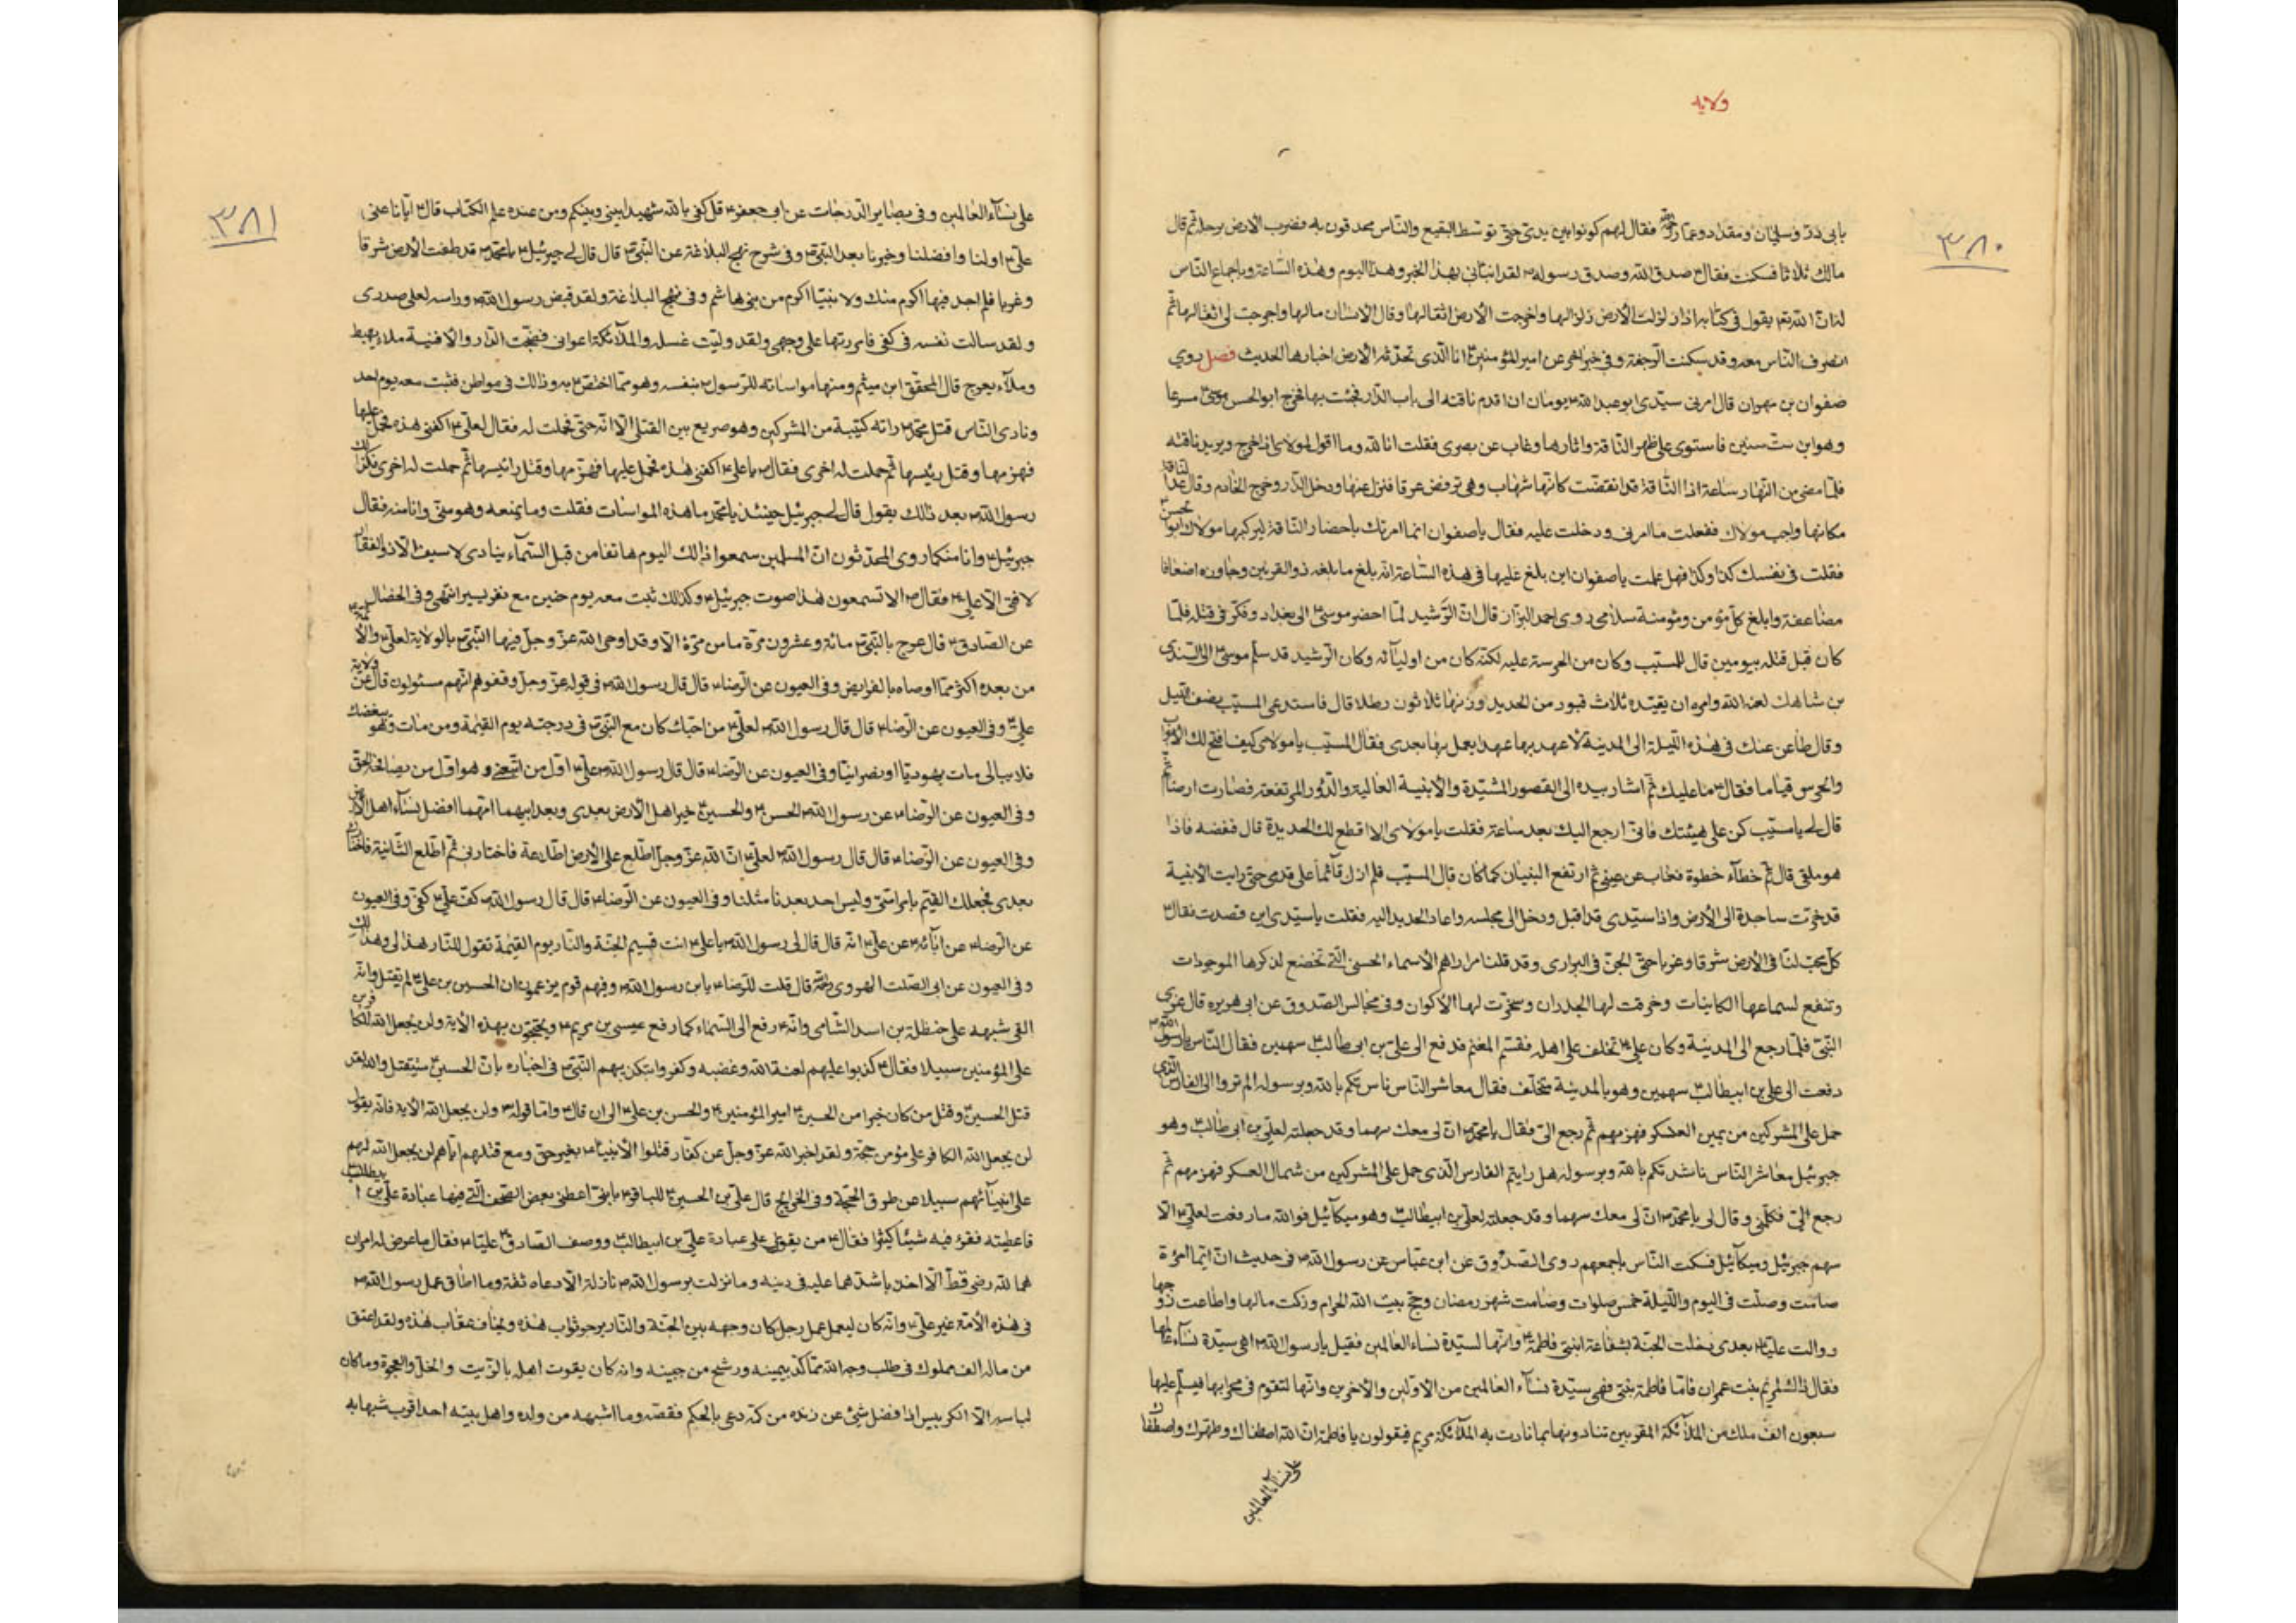 ولایه
٣٨٠
بابی ذر وسلمان ومقداد وعمار فقال لهم كونوا بین یدی حتی توسط البقیع والناس محدقون به فضرب الارض برجله ثم قال
مالك ثلاثا فسكنت فقال صدق الله وصدق رسوله لقد انبأنی بهذا الخبر وهذا الیوم وهذه الساعة وباجماع الناس
لنا ان الله یقول فی كتابه اذا زلزلت الأرض زلزالها واخرجت الأرض اثقالها وقال الانسان مالها واخرجت لی اثقالها ثم
انصرف الناس معه وقد سكنت الرجفة وفی خبر اخر عن امیر المؤمنین انا الذی تحدثه الارض اخبارها الحدیث فصل روی
صفوان بن مهران قال امرنی سیدی ابو عبد الله یوما ان اقدم ناقته الی باب الدار فجئت بها فخرج ابو الحسن موسی مسرعا
وهو ابن ست سنین فاستوی علی ظهر الناقة واثارها وغاب عن بصری فقلت انا لله وما اقول لمولای اذا خرج یرید ناقته
فلما مضی من النهار ساعة اذا الناقة قد انقضت كانها شهاب وهی ترفض عرقا فنزل عنها ودخل الدار وخرج الخادم وقال اعد الناقة
مكانها واجب مولاك ففعلت ما امرنی ودخلت علیه فقال یا صفوان انما امرتك باحضار الناقة لیركبها مولاك ابو الحسن
فقلت فی نفسك كذا وكذا فهل علمت یا صفوان این بلغ علیها فی هذه الساعة انه بلغ ما بلغه ذو القرنین وجاوزه اضعافا
مضاعفة وابلغ كل مؤمن ومؤمنة سلامی روی احمد البزاز قال ان الرشید لما احضر موسی الی بغداد وفكر فی قتله فلما
كان قبل قتله بیومین قال للمسیب وكان من الحرسة علیه لكنه كان من اولیائه وكان الرشید قد سلم موسی الی السندی
بن شاهك لعنه الله وامره ان یقیده ثلاث قیود من الحدید وزنها ثلاثون رطلا قال فاستدعی المسیب نصف اللیل
وقال ظاعن عنك فی هذه اللیلة الی المدینة لاعهد بها عهدا یعمل بها بعدی فقال المسیب یا مولای كیف افتح لك الأبواب
والحرس قیاما فقال ما علیك ثم اشار بیده الی القصور المشیدة والأبنیة العالیة والدور المرتفعة فصارت ارضا ثم
قال لی یا مسیب كن علی هیئتك فانی ارجع الیك بعد ساعة فقلت یا مولای الا اقطع لك الحدیدة قال فنفضه فاذا
هو ملقی قال ثم خطآء خطوة فغاب عن عینی ثم ارتفع البنیان كما كان قال المسیب فلم ازل قائما علی قدمی حتی رایت الأبنیة
قد خرت ساجدة الی الأرض واذا سیدی قد اقبل ودخل الی مجلسه واعاد الحدید الیه فقلت یا سیدی این قصدت فقال
كل محب لنا فی الأرض شرقا وغربا حتی الجن فی البراری وقد قلنا مرارا هم الاسماء الحسنی التی تخضع لذكرها الموجودات
وتنفع لسماعها الكاینات وخرقت لها الجدران وسخرت لها الأكوان وفی مجالس الصدوق عن ابی هریره قال غزی
النبی فلما رجع الی المدینة وكان علی تخلف علی اهله فقسم المغنم فدفع الی علی بن ابی طالب سهمین فقال الناس یا رسول الله
دفعت الی علی بن ابیطالب سهمین وهو بالمدینة متخلف فقال معاشر الناس ناشدتكم بالله وبرسوله الم تروا الی الفارس الذی
حمل علی المشركین من یمین العسكر فهزمهم ثم رجع الی فقال یا محمد ان لی معك سهما وقد جعلته لعلی بن ابی طالب وهو
جبرئیل معاشر الناس ناشدتكم بالله وبرسوله هل رایتم الفارس الذی حمل علی المشركین من شمال العسكر فهزمهم ثم
رجع الی فكلمنی وقال لی یا محمد ان لی معك سهما وقد جعلته لعلی بن ابیطالب وهو میكآئیل فوالله ما دفعت لعلی الا
سهم جبرئیل ومیكآئیل فسكت الناس باجمعهم روی الصدوق عن ابن عباس عن رسول الله فی حدیث ان ایما امرؤة
صامت وصلت فی الیوم واللیلة خمس صلوات وصامت شهر رمضان وحج بیت الله الحرام وزكت مالها واطاعت زوجها
ووالت علیا بعدی دخلت الجنة بشفاعة ابنتی فاطمة وانها لسیدة نساء العالمین فقیل یا رسول الله اهی سیدة نسآء عالمها
فقال ذاك لمریم بنت عمران فاما فاطمة بنتی فهی سیدة نسآء العالمین من الاولین والاخرین وانها لتقوم فی محرابها فیسلم علیها
سبعون الف ملك من الملآئكة المقربین تنادونها بما نادت به الملآئكة مریم فیقولون یا فاطمة ان الله اصطفاك وطهرك واصطفاك
علی نسآء العالمین
٣٨١
علی نسآء العالمین وفی بصایر الدرجات عن ابی جعفر قل كفی بالله شهیدا بینی وبینكم ومن عنده علم الكتاب قال ایانا عنی
علی اولنا وافضلنا وخیرنا بعد النبی وفی شرح نهج البلاغة عن النبی قال قال لی جبرئیل یا محمد قد طفت الأرض شرقا
وغربا فلم اجد فیها اكرم منك ولا بیتا اكرم من بنی هاشم وفی نهج البلاغة ولقد قبض رسول الله وراسه لعلی صدری
ولقد سالت نفسه فی كفی فامررتها علی وجهی ولقد ولیت غسله والملآئكة اعوانی فضجت الدار والافنیة ملاء یهبط
وملآء یعرج قال المحقق ابن میثم ومنها مواساته للرسول بنفسه وهو مما اختص به وذالك فی مواطن فثبت معه یوم احد
ونادی الناس قتل محمد راته كتیبة من المشركین وهو صریع بین القتلی الا انه حی فحملت له فقال لعلی اكفنی هذه فحمل علیها
فهزمها وقتل رئیسها ثم حملت له اخری فقال یا علی اكفنی هذه فحمل علیها فهزمها وقتل رائیسها ثم حملت له اخری فكذلك
رسول الله بعد ذالك یقول قال لی جبرئیل حینئذ یا محمد ما هذه المواسات فقلت وما یمنعه وهو منی وانا منه فقال
جبرئیل وانا منكما روی المحدثون ان المسلمین سمعوا ذالك الیوم هاتفا من قبل السمآء ینادی لا سیف الا ذو الفقار
لا فتی الا علی فقال الا تسمعون هذا صوت جبرئیل وكذلك ثبت معه یوم حنین مع نفر یسیر انتهی وفی الخصال
عن الصادق قال عرج بالنبی مائة وعشرون مرة ما من مرة الا وقد اوحی الله عز وجل فیها النبی بالولایة لعلی والأئمة
من بعده اكثر مما اوصاه بالفرایض وفی العیون عن الرضا قال قال رسول الله فی قوله عز وجل وقفوهم انهم مسئولون قال عن ولایة
علی وفی العیون عن الرضا قال قال رسول الله لعلی من احبك كان مع النبی فی درجته یوم القیمة ومن مات وهو یبغضك
فلا یبالی مات یهودیا او نصرانیا وفی العیون عن الرضا قال قال رسول الله علی اول من اتبعنی وهو اول من یصافحه الحق
وفی العیون عن الرضا عن رسول الله الحسن والحسین خیر اهل الأرض بعدی وبعد ابیهما امهما افضل نسآء اهل الأرض
وفی العیون عن الرضا قال قال رسول الله لعلی ان الله عز وجل اطلع علی الأرض اطلاعة فاختارنی ثم اطلع الثانیة فاختارك
بعدی فجعلك القیم بامر امتی ولیس احد بعدنا مثلنا وفی العیون عن الرضا قال قال رسول الله كف علی كفی وفی العیون
عن الرضا عن ابآئه عن علی انه قال قال لی رسول الله یا علی انت قسیم الجنة والنار یوم القیمة تقول للنار هذا لی وهذا لك
وفی العیون عن ابی الصلت الهروی قال قلت للرضا یابن رسول الله وفیهم قوم یزعمون ان الحسین بن علی لم یقتل وانه
القی شبهه علی حنظلة بن اسد الشامی وانه رفع الی السماء كما رفع عیسی بن مریم ویحتجون بهذه الأیة ولن یجعل الله للكافرین
علی المؤمنین سبیلا فقال كذبوا علیهم لعنة الله وغضبه وكفروا بتكذیبهم النبی فی اخباره بان الحسین سیقتل والله لقد
قتل الحسین وقتل من كان خیرا من الحسین امیر المؤمنین والحسن بن علی الی ان قال واما قوله ولن یجعل الله الآیة فانه یقول
لن یجعل الله الكافر علی مؤمن حجة ولقد اخبر الله عز وجل عن كفار قتلوا الأنبیاء بغیر حق ومع قتلهم ایاهم لن یجعل الله لهم
علی انبیآئهم سبیلا من طریق الحجة وفی الخرایج قال علی بن الحسین للباقر یا بنی اعطنی بعض الصحف التی فیها عبادة علی بن ابیطالب
فاعطیته فقرء فیه شیئا كثیرا فقال من یقوی علی عبادة علی بن ابیطالب ووصف الصادق علیا فقال ما عرض له امران
هما لله رضی قط الا اخذ باشدهما علیه فی دینه وما نزلت برسول الله نازلة الا دعاه ثقة وما اطاق عمل رسول الله
فی هذه الأمة غیر علی وانه كان لیعمل عمل رجل كان وجهه بین الجنة والنار یرجو ثواب هذه ویخاف عقاب هذه ولقد اعتق
من ماله الف مملوك فی طلب وجه الله مما كد بیمینه ورشح من جبینه وانه كان یقوت اهله بالزیت والخل والعجوة وما كان
لباسه الا الكرابیس اذا فضل شئ عن زنده من كمه دعی بالحكم فقصه وما اشبهه من ولده واهل بیته احد اقرب شبها به